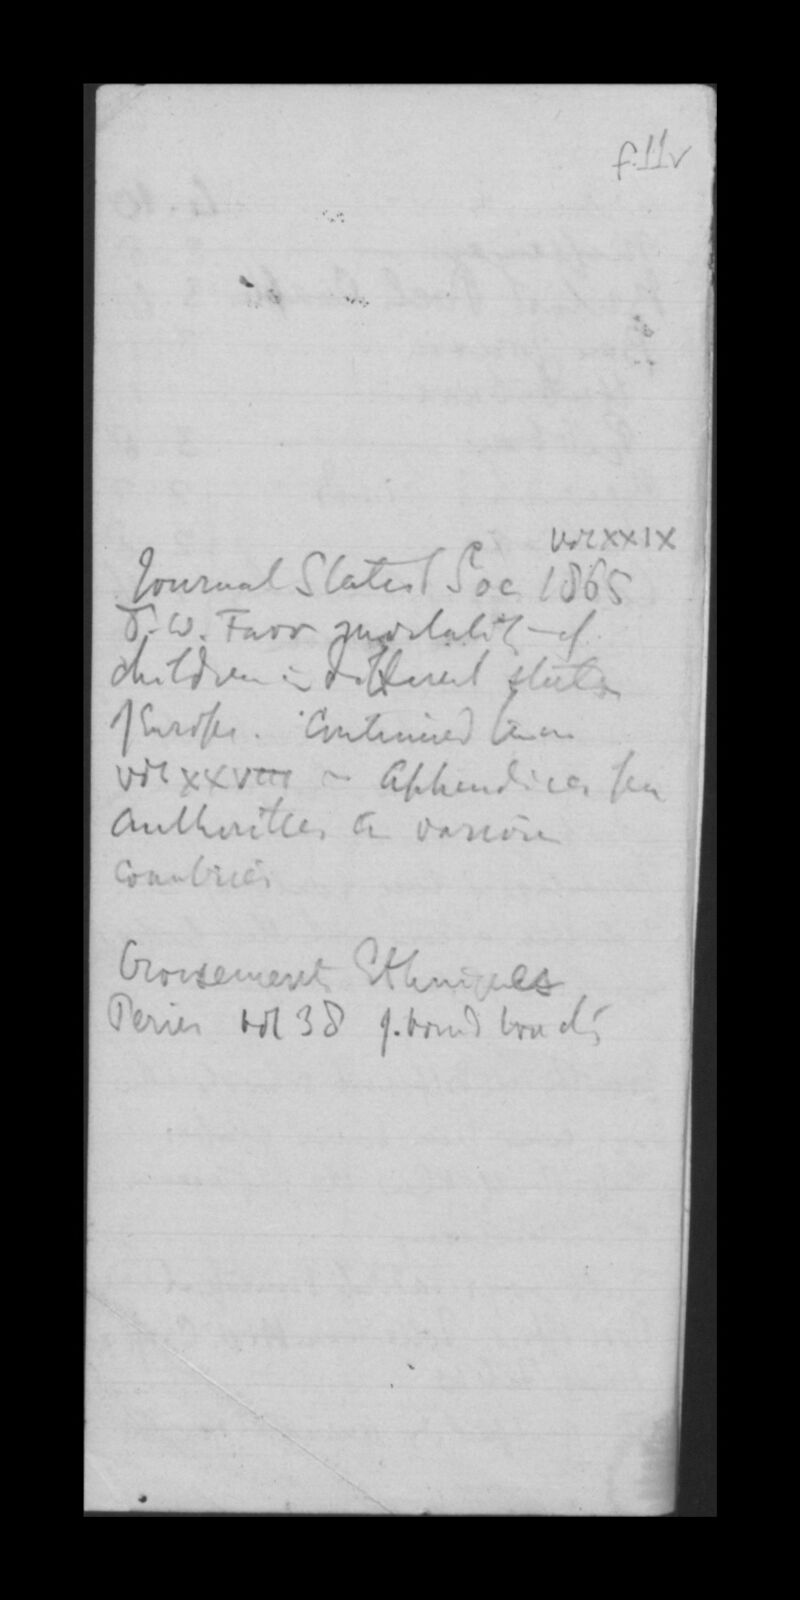 f11v
vol XXIX
Journal Statist Soc 1865
W. Farr mortality of
children in different states
of Europe. Continued from
vol XXVIII Appendices
authorities in various
countries
Croisements Ethniques
Perier vol 38